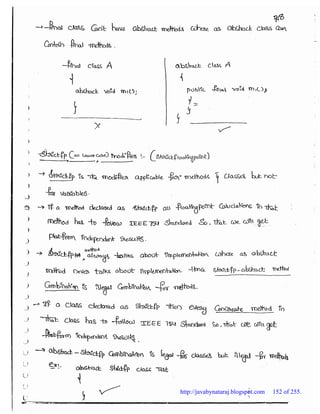 → final class can't have abstract methods where as abstract class can
contain final methods.
final class A
{
abstract void m1();
}
X
abstract class A
{
public final void m1()
{
=
}
}
✓
strictfp (on lower case) modifier :- (strictfloatingpoint)
→ strictfp is the modifier applicable for methods & classes but not
for variables.
→ If a method declared as strictfp all floatingpoint calculations in that
method has to follow IEEE 754 standard so, that we can get
platform independent results.
→ strictfp method always talks about implementation where as abstract
method never talks about implementation hence strictfp-abstract method
combination is illegal combination for methods.
→ If a class declared as strictfp then every concrete method in
that class has to follow IEEE 754 standard so, that we can get
platform independent results.
→ abstract-strictfp combination is legal for classes but illegal for methods
Ex:. abstract strictfp class Test
{
} ✓
http://javabynataraj.blogspot.com 152 of 255.